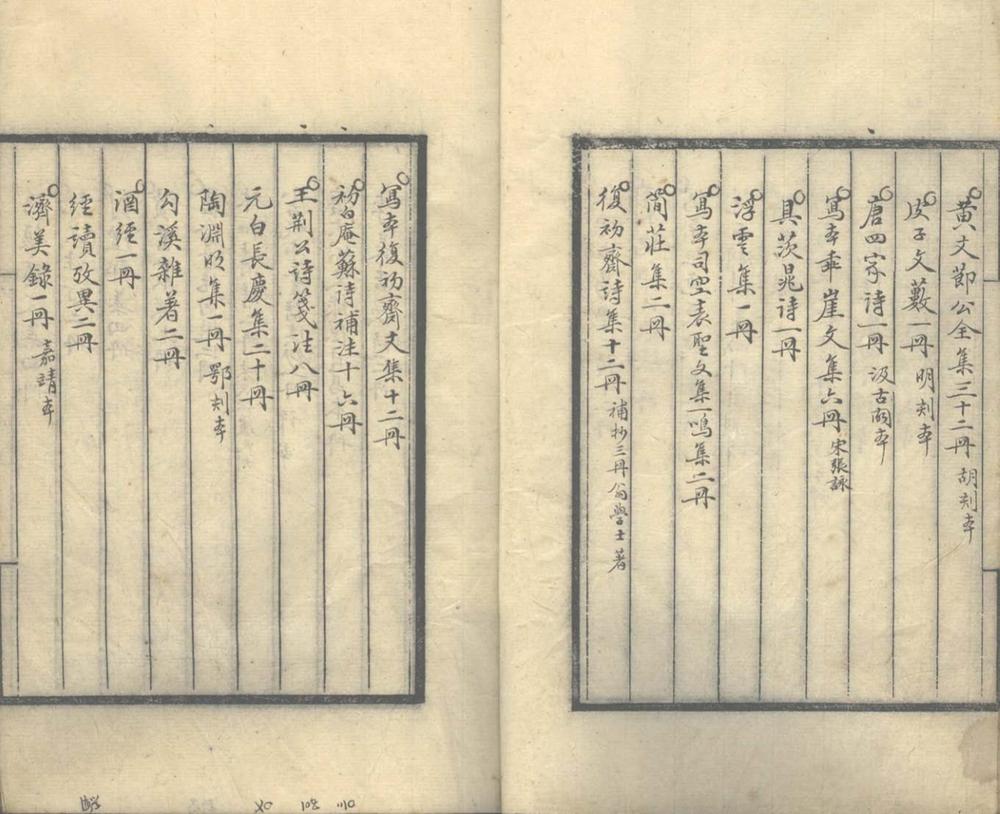 黄文節公全集三十二冊 胡刻本
皮子文藪一冊 明刻本
唐四家詩一冊 汲古閣本
寫本乖崖文集六冊 宋張詠
具茨晁詩一冊
浮雲集一冊
寫本司空表聖文集一鳴集二冊
簡莊集二冊
復初齋詩集十二冊 補抄三冊翁學士著
寫本復初齋文集十二冊
初白庵蘇詩補注十六冊
王荆公詩箋注八冊
元白長慶集二十冊
陶淵明集一冊 鄂刻本
勾溪雜著二冊
酒經一冊
經讀攷異二冊
濟美錄一冊 嘉靖本